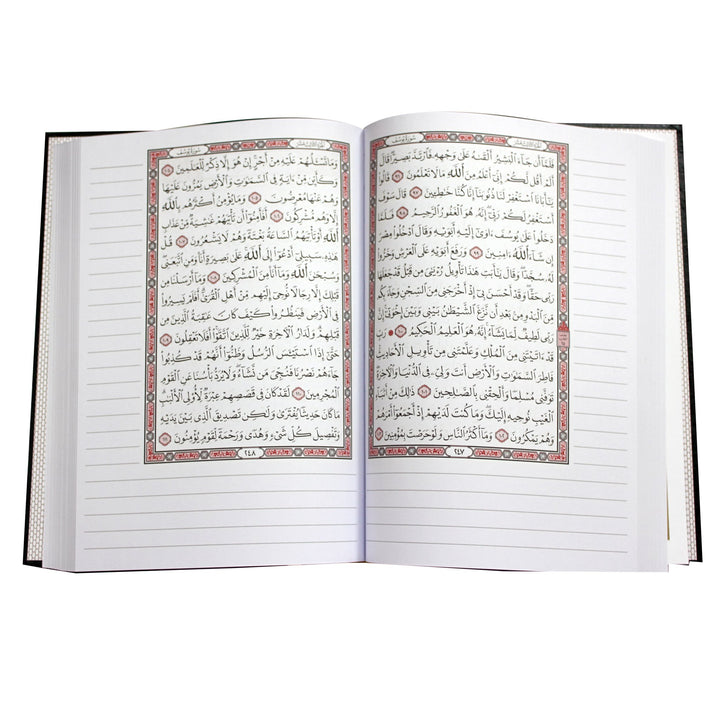 سُورَةُ يُوسُفَ
الجُزْءُ الثَّالِثَ عَشَرَ
فَلَمَّآ أَن جَآءَ ٱلْبَشِيرُ أَلْقَىٰهُ عَلَىٰ وَجْهِهِۦ فَٱرْتَدَّ بَصِيرًا ۖ قَالَ
أَلَمْ أَقُل لَّكُمْ إِنِّىٓ أَعْلَمُ مِنَ ٱللَّهِ مَا لَا تَعْلَمُونَ ٩٦ قَالُوا۟
يَٰٓأَبَانَا ٱسْتَغْفِرْ لَنَا ذُنُوبَنَآ إِنَّا كُنَّا خَٰطِـِٔينَ ٩٧ قَالَ سَوْفَ
أَسْتَغْفِرُ لَكُمْ رَبِّىٓ ۖ إِنَّهُۥ هُوَ ٱلْغَفُورُ ٱلرَّحِيمُ ٩٨ فَلَمَّا
دَخَلُوا۟ عَلَىٰ يُوسُفَ ءَاوَىٰٓ إِلَيْهِ أَبَوَيْهِ وَقَالَ ٱدْخُلُوا۟ مِصْرَ
إِن شَآءَ ٱللَّهُ ءَامِنِينَ ٩٩ وَرَفَعَ أَبَوَيْهِ عَلَى ٱلْعَرْشِ وَخَرُّوا۟
لَهُۥ سُجَّدًا ۖ وَقَالَ يَٰٓأَبَتِ هَٰذَا تَأْوِيلُ رُءْيَٰىَ مِن قَبْلُ قَدْ جَعَلَهَا
رَبِّى حَقًّا ۖ وَقَدْ أَحْسَنَ بِىٓ إِذْ أَخْرَجَنِى مِنَ ٱلسِّجْنِ وَجَآءَ بِكُم
مِّنَ ٱلْبَدْوِ مِنۢ بَعْدِ أَن نَّزَغَ ٱلشَّيْطَٰنُ بَيْنِى وَبَيْنَ إِخْوَتِىٓ ۚ إِنَّ
رَبِّى لَطِيفٌ لِّمَا يَشَآءُ ۚ إِنَّهُۥ هُوَ ٱلْعَلِيمُ ٱلْحَكِيمُ ١٠٠ ۞ رَبِّ
قَدْ ءَاتَيْتَنِى مِنَ ٱلْمُلْكِ وَعَلَّمْتَنِى مِن تَأْوِيلِ ٱلْأَحَادِيثِ ۚ
فَاطِرَ ٱلسَّمَٰوَٰتِ وَٱلْأَرْضِ أَنتَ وَلِىِّۦ فِى ٱلدُّنْيَا وَٱلْءَاخِرَةِ ۖ
تَوَفَّنِى مُسْلِمًا وَأَلْحِقْنِى بِٱلصَّٰلِحِينَ ١٠١ ذَٰلِكَ مِنْ أَنۢبَآءِ
ٱلْغَيْبِ نُوحِيهِ إِلَيْكَ ۖ وَمَا كُنتَ لَدَيْهِمْ إِذْ أَجْمَعُوٓا۟ أَمْرَهُمْ
وَهُمْ يَمْكُرُونَ ١٠٢ وَمَآ أَكْثَرُ ٱلنَّاسِ وَلَوْ حَرَصْتَ بِمُؤْمِنِينَ ١٠٣
٢٤٧
سُورَةُ يُوسُفَ
الجُزْءُ الثَّالِثَ عَشَرَ
وَمَا تَسْـَٔلُهُمْ عَلَيْهِ مِنْ أَجْرٍ ۚ إِنْ هُوَ إِلَّا ذِكْرٌ لِّلْعَٰلَمِينَ ١٠٤
وَكَأَيِّن مِّنْ ءَايَةٍ فِى ٱلسَّمَٰوَٰتِ وَٱلْأَرْضِ يَمُرُّونَ عَلَيْهَا
وَهُمْ عَنْهَا مُعْرِضُونَ ١٠٥ وَمَا يُؤْمِنُ أَكْثَرُهُم بِٱللَّهِ
إِلَّا وَهُم مُّشْرِكُونَ ١٠٦ أَفَأَمِنُوٓا۟ أَن تَأْتِيَهُمْ غَٰشِيَةٌ مِّنْ عَذَابِ
ٱللَّهِ أَوْ تَأْتِيَهُمُ ٱلسَّاعَةُ بَغْتَةً وَهُمْ لَا يَشْعُرُونَ ١٠٧ قُلْ
هَٰذِهِۦ سَبِيلِىٓ أَدْعُوٓا۟ إِلَى ٱللَّهِ ۚ عَلَىٰ بَصِيرَةٍ أَنَا۠ وَمَنِ ٱتَّبَعَنِى ۖ
وَسُبْحَٰنَ ٱللَّهِ وَمَآ أَنَا۠ مِنَ ٱلْمُشْرِكِينَ ١٠٨ وَمَآ أَرْسَلْنَا مِن
قَبْلِكَ إِلَّا رِجَالًا نُّوحِىٓ إِلَيْهِم مِّنْ أَهْلِ ٱلْقُرَىٰٓ ۗ أَفَلَمْ يَسِيرُوا۟
فِى ٱلْأَرْضِ فَيَنظُرُوا۟ كَيْفَ كَانَ عَٰقِبَةُ ٱلَّذِينَ مِن
قَبْلِهِمْ ۗ وَلَدَارُ ٱلْءَاخِرَةِ خَيْرٌ لِّلَّذِينَ ٱتَّقَوْا۟ ۗ أَفَلَا تَعْقِلُونَ ١٠٩
حَتَّىٰٓ إِذَا ٱسْتَيْـَٔسَ ٱلرُّسُلُ وَظَنُّوٓا۟ أَنَّهُمْ قَدْ كُذِبُوا۟
جَآءَهُمْ نَصْرُنَا فَنُجِّىَ مَن نَّشَآءُ ۖ وَلَا يُرَدُّ بَأْسُنَا عَنِ ٱلْقَوْمِ
ٱلْمُجْرِمِينَ ١١٠ لَقَدْ كَانَ فِى قَصَصِهِمْ عِبْرَةٌ لِّأُو۟لِى ٱلْأَلْبَٰبِ ۗ
مَا كَانَ حَدِيثًا يُفْتَرَىٰ وَلَٰكِن تَصْدِيقَ ٱلَّذِى بَيْنَ يَدَيْهِ
وَتَفْصِيلَ كُلِّ شَىْءٍ وَهُدًى وَرَحْمَةً لِّقَوْمٍ يُؤْمِنُونَ ١١١
٢٤٨